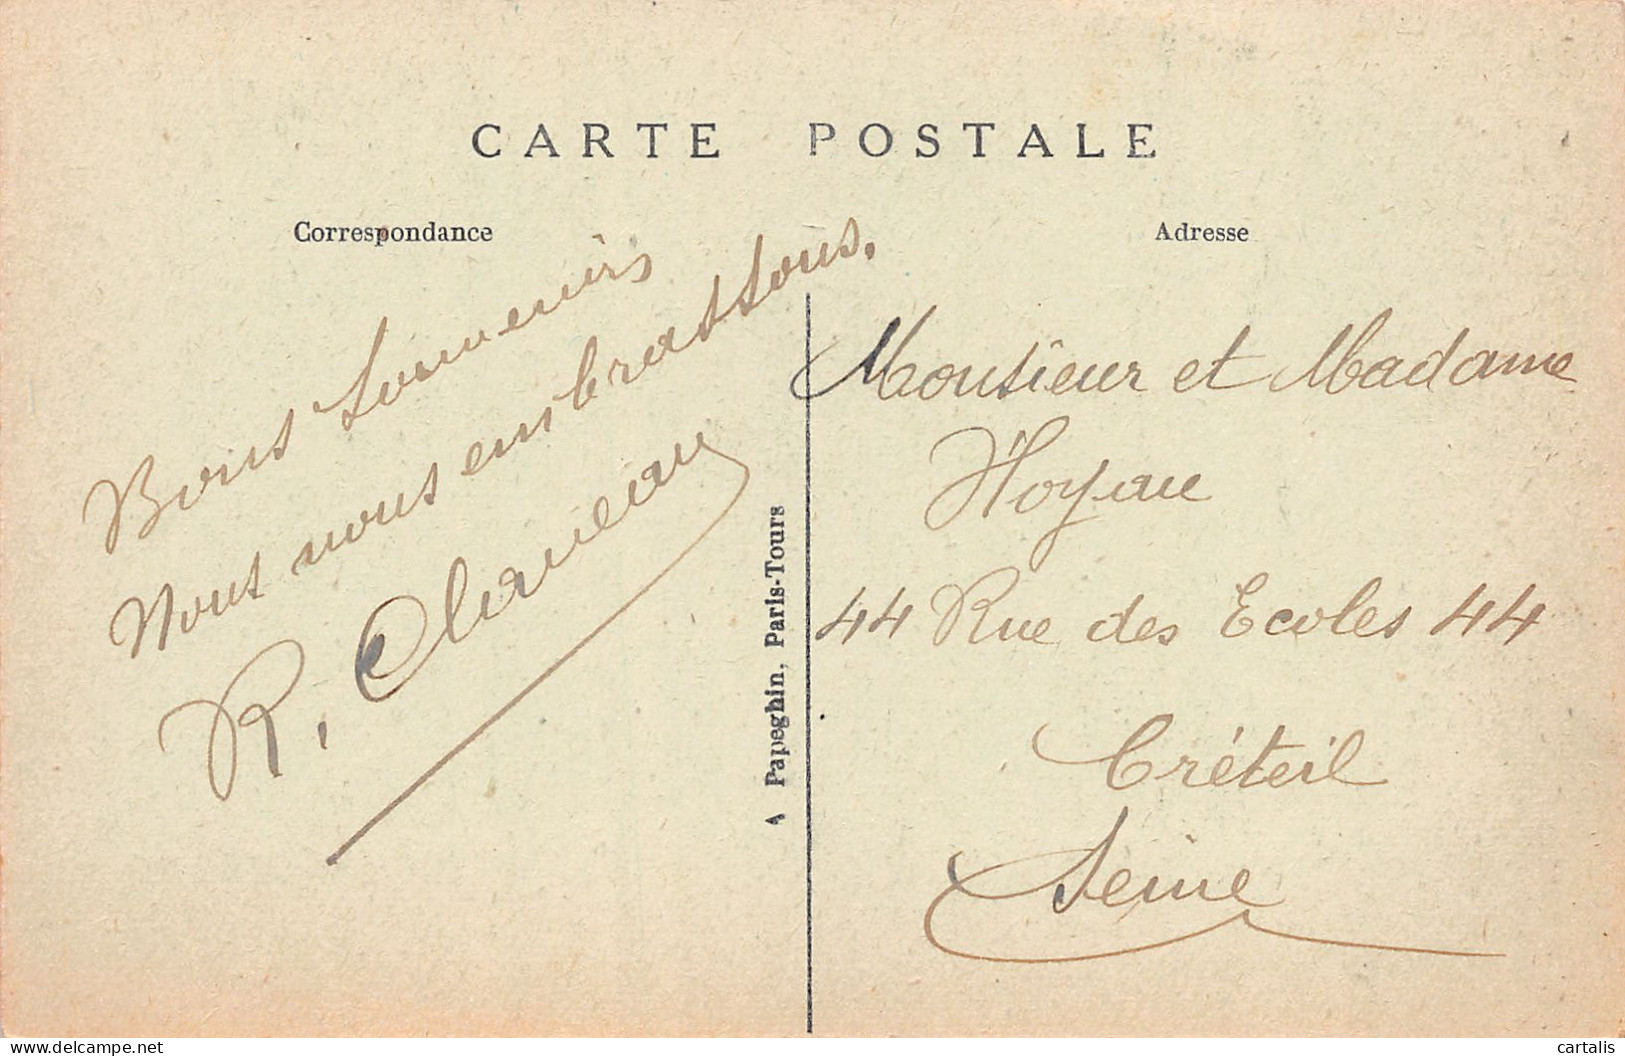 CARTE POSTALE
Correspondance
Bons souvenirs
Nous vous embrassons.
R. Claveau
A Papeghin, Paris-Tours
Adresse
Monsieur et Madame
Noyau
44 Rue des Ecoles 44
Créteil
Seine
delcampe.net
cartalis